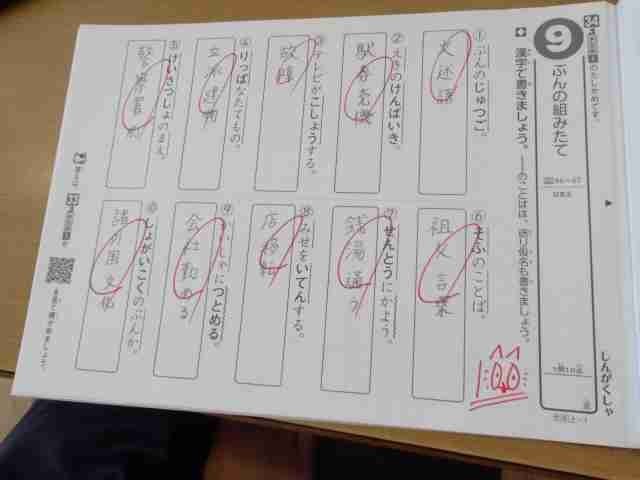 9
ぶんの組みたて
漢字で書きましょう。
——のことばは、送り仮名も書きましょう。
しんがくしゃ
①ぶんのじゅつご。
文 述語
②えきのけんばいき。
駅 券売機
③テレビがこしょうする。
故障
④りっぱなたてもの。
立派 建物
⑤けいさつしょのまえ。
警察署 前
⑥そふのことば。
祖父 言葉
⑦せんとうにかよう。
銭湯 通う
⑧みせをいてんする。
店 移転
⑨かいしゃにつとめる。
会社 勤める
⑩しょがいこくのぶんか。
諸外国 文化
100